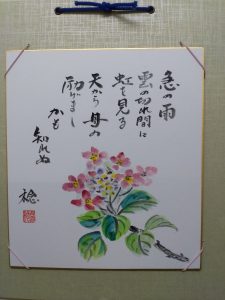 急の雨
雲の切れ間に
虹を見る
天から母の
励まし
かも
知れぬ